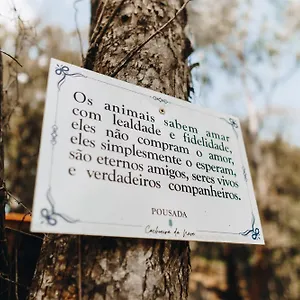 Os animais sabem amar
com lealdade e fidelidade,
eles não compram o amor,
eles simplesmente o esperam,
são eternos amigos, seres vivos
e verdadeiros companheiros.
POUSADA
Cachoeira da Nave